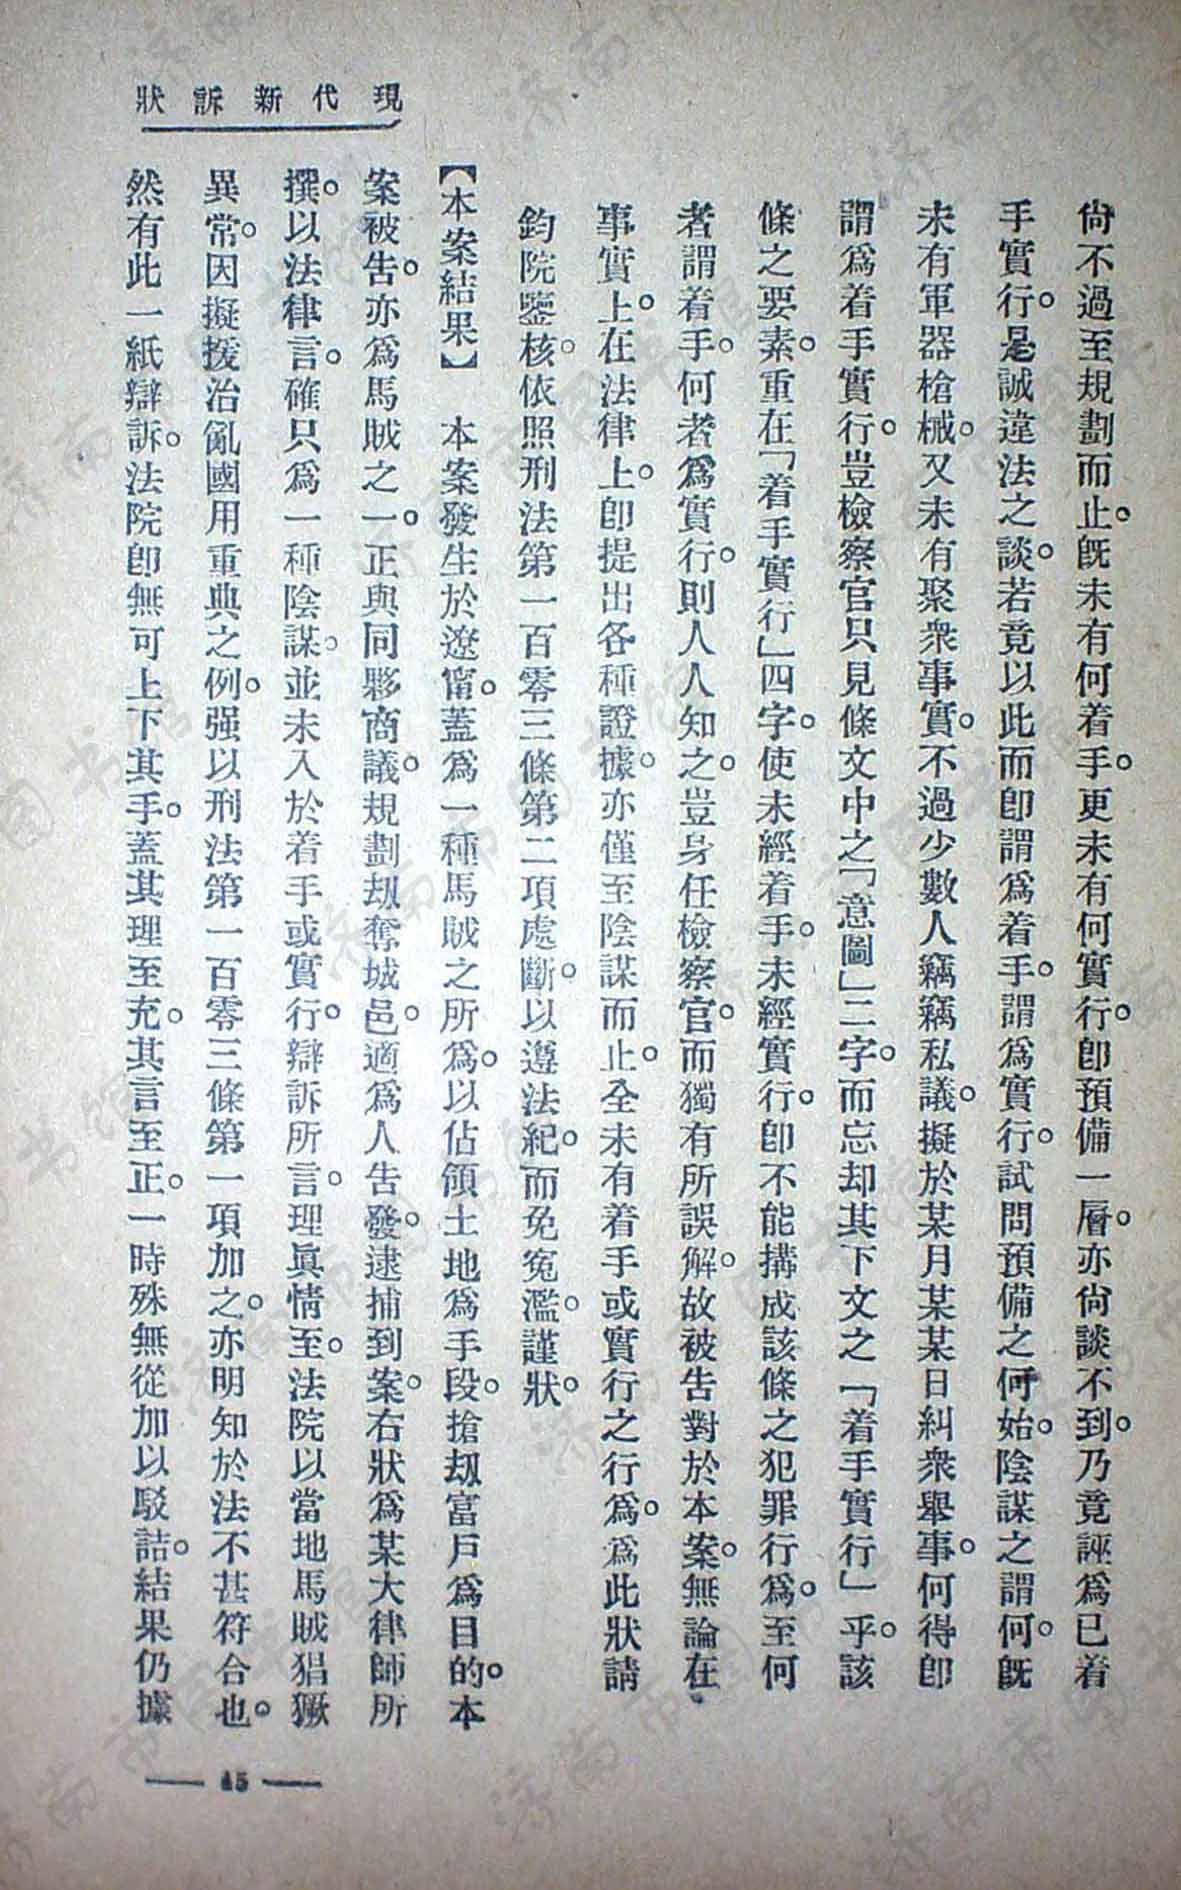 現代新訴狀
尙不過至規劃而止。旣未有何着手。更未有何實行。卽預備一層。亦尙談不到。乃竟誣爲已着
手實行。是誠違法之談。若竟以此而卽謂爲着手。謂爲實行。試問預備之何始。陰謀之謂何。旣
未有軍器槍械。又未有聚衆事實。不過少數人竊竊私議。擬於某月某某日糾衆舉事。何得卽
謂爲着手實行。豈檢察官只見條文中之「意圖」二字。而忘却其下文之「着手實行」乎。該
條之要素。重在「着手實行」四字。使未經着手。未經實行。卽不能搆成該條之犯罪行爲。至何
者謂着手。何者爲實行。則人人知之。豈身任檢察官。而獨有所誤解。故被告對於本案。無論在
事實上。在法律上。卽提出各種證據。亦僅至陰謀而止。全未有着手或實行之行爲。爲此狀請
鈞院鑒核。依照刑法第一百零三條第二項處斷。以遵法紀。而免寃濫。謹狀。
【本案結果】 本案發生於遼甯。蓋爲一種馬賊之所爲。以佔領土地爲手段。搶刼富戶爲目的。本
案被告。亦爲馬賊之一。正與同夥商議。規劃刼奪城邑。適爲人告發。逮捕到案。右狀爲某大律師所
撰。以法律言。確只爲一種陰謀。並未入於着手或實行。辯訴所言。理眞情至。法院以當地馬賊猖獗
異常。因擬援治亂國用重典之例。强以刑法第一百零三條第一項加之。亦明知於法不甚符合也。
然有此一紙辯訴。法院卽無可上下其手。蓋其理至充。其言至正。一時殊無從加以駁詰。結果仍據
— 45 —